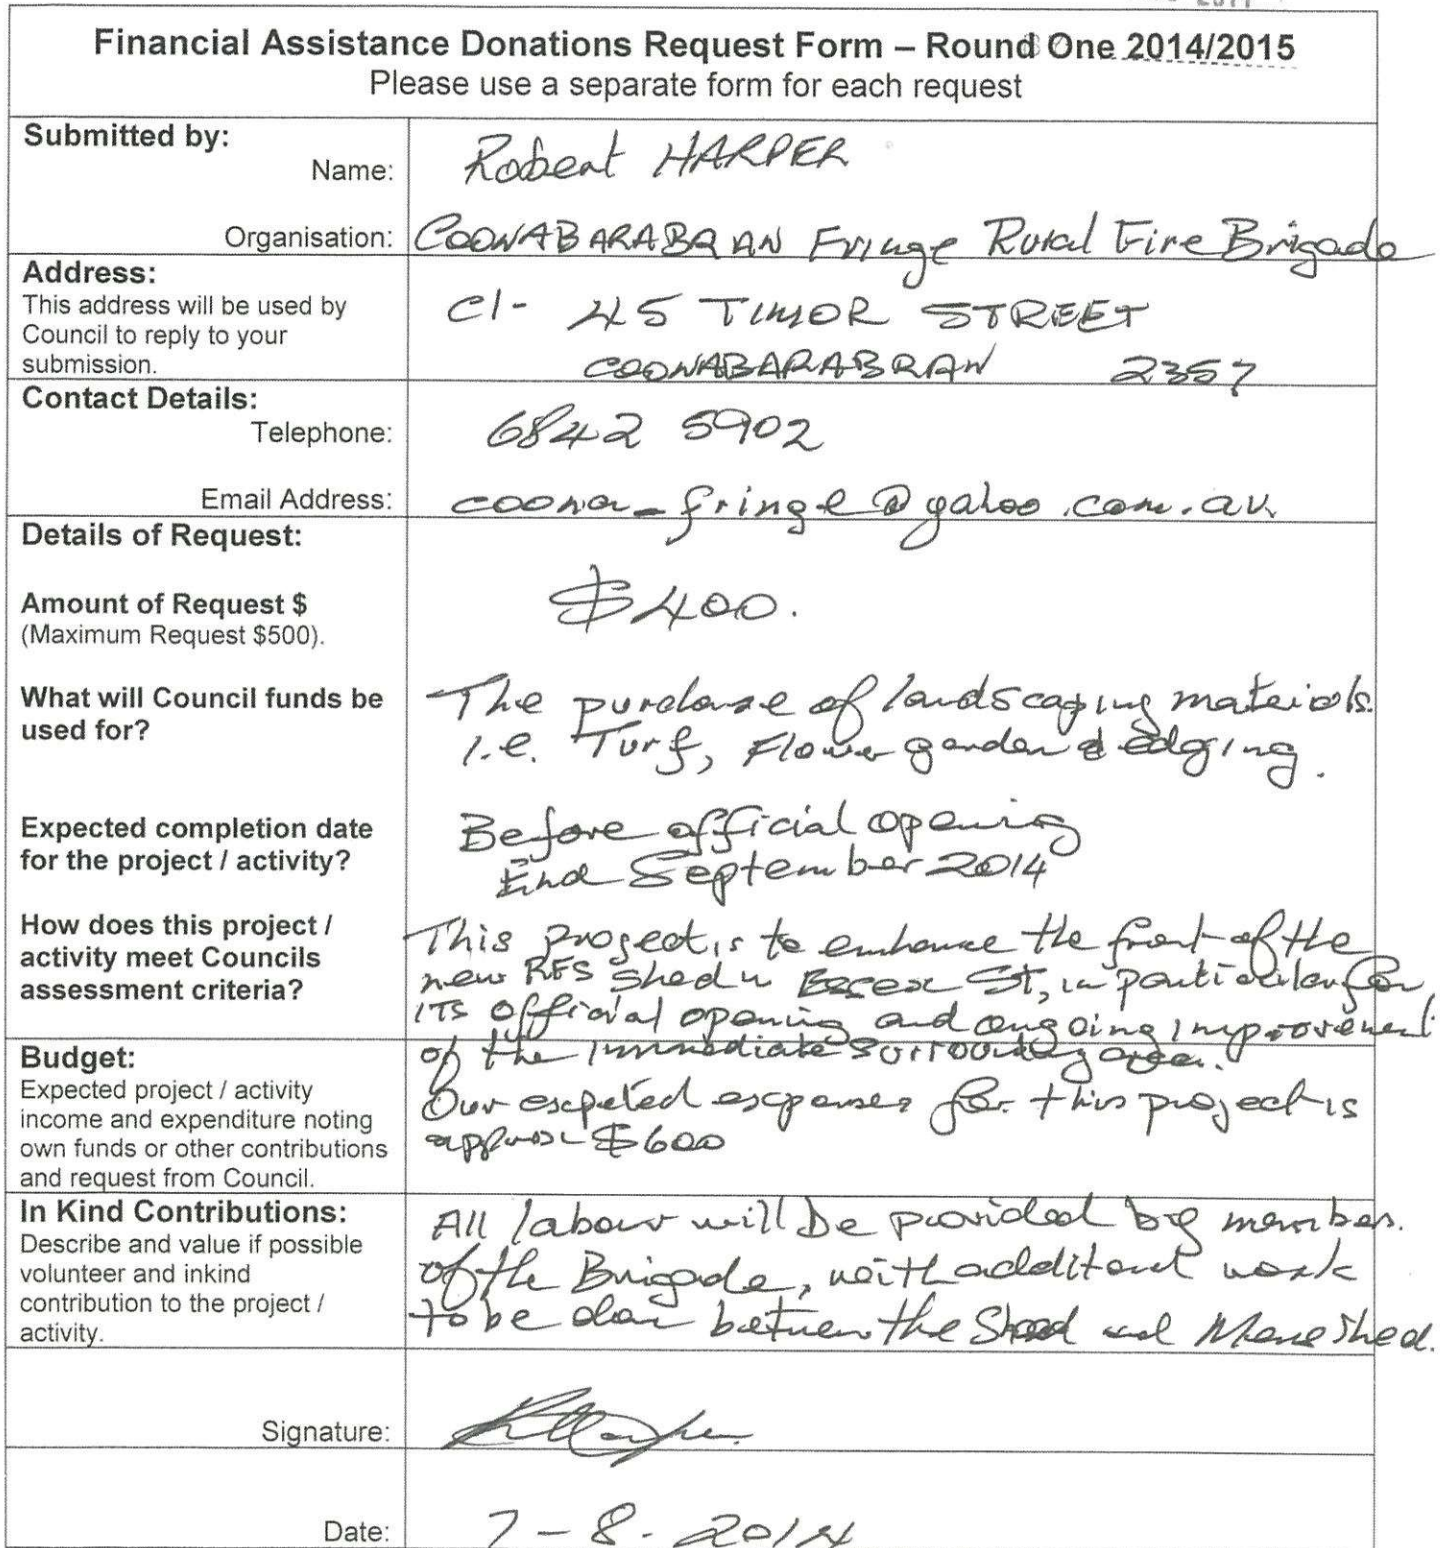 Financial Assistance Donations Request Form – Round One 2014/2015
Please use a separate form for each request
Submitted by:
Name: Robert HARPER
Organisation: COONABARABRAN Fringe Rural Fire Brigade
Address:
This address will be used by
Council to reply to your
submission.
C/- 45 TIMOR STREET
COONABARABRAN 2357
Contact Details:
Telephone: 6842 5902
Email Address: coona_fringe@yahoo.com.au.
Details of Request:
Amount of Request $
(Maximum Request $500).
$400.
What will Council funds be
used for?
The purchase of landscaping materials.
i.e. Turf, Flower garden & edging.
Expected completion date
for the project / activity?
Before official opening
End September 2014
How does this project /
activity meet Councils
assessment criteria?
This project is to enhance the front of the
new RFS Shed in Essex St, in particular for
ITS official opening and ongoing improvement
of the immediate surrounding area.
Budget:
Expected project / activity
income and expenditure noting
own funds or other contributions
and request from Council.
Our expected expenses for this project is
approx $600
In Kind Contributions:
Describe and value if possible
volunteer and inkind
contribution to the project /
activity.
All labour will be provided by members
of the Brigade, with additional work
to be done between the Shed and Mens Shed.
Signature:
Date: 7-8-2014